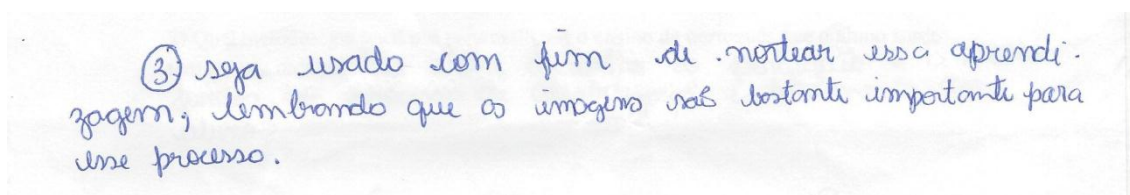 ③ seja usado com fim de nortear essa aprendi-
zagem, lembrando que as imagens são bastante importante para
esse processo.